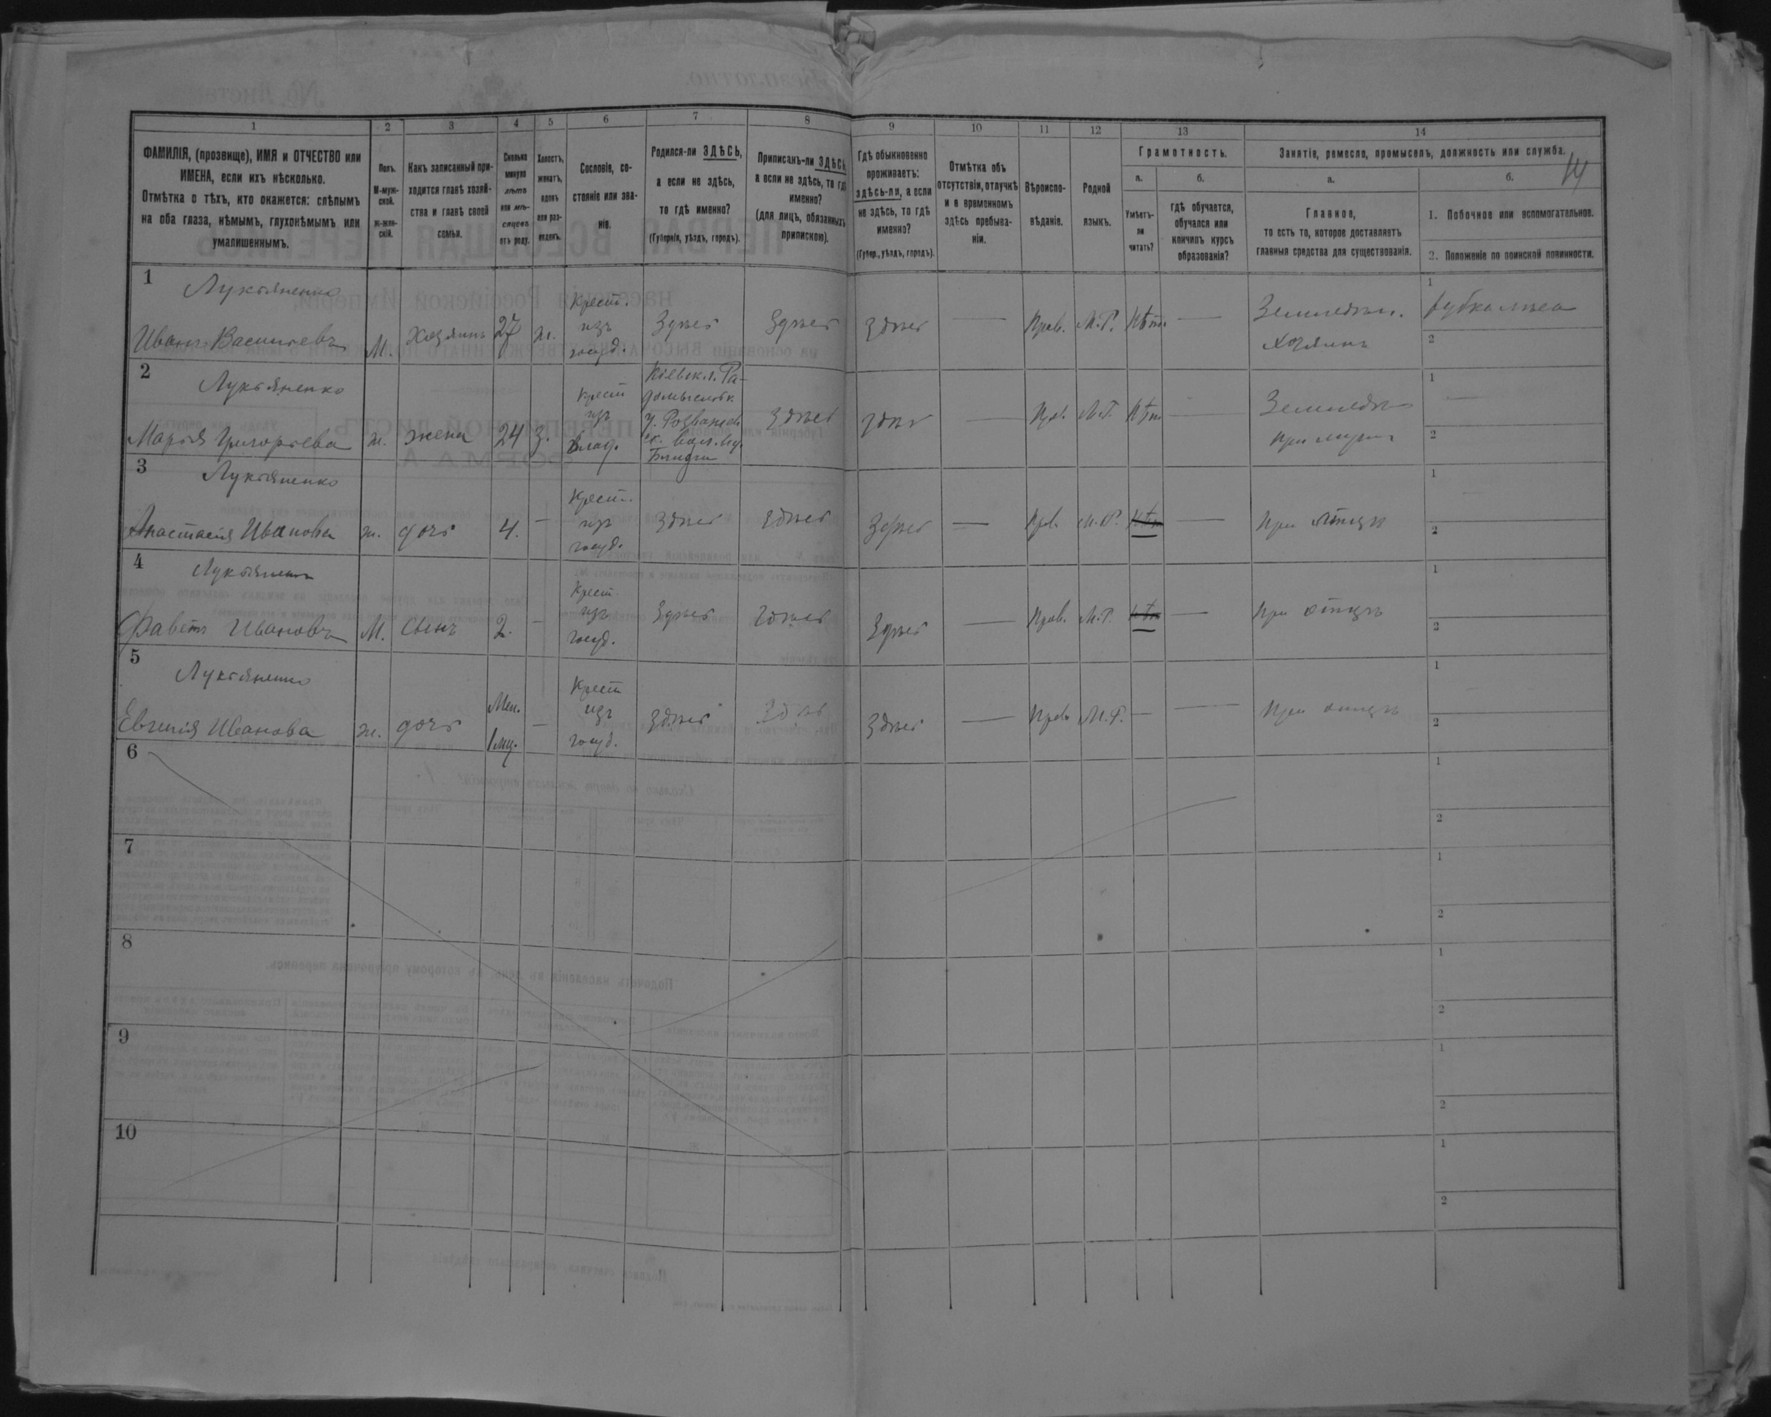 1 2 3 4 5 6 7 8 9 10 11 12 13 14
ФАМИЛІЯ, (прозвище), ИМЯ и ОТЧЕСТВО или
ИМЕНА, если ихъ нѣсколько.
Отмѣтка о тѣхъ, кто окажется: слѣпымъ
на оба глаза, нѣмымъ, глухонѣмымъ или
умалишеннымъ.
Полъ.
М-муж-
ской.
ж-жен-
скій.
Какъ записанный при-
ходится главѣ хозяй-
ства и главѣ своей
семьи.
Сколько
минуло
лѣтъ
или мѣ-
сяцевъ
отъ роду.
Холостъ,
женатъ,
вдовъ
или раз-
веденъ.
Сословіе, со-
стояніе или зва-
ніе.
Родился-ли ЗДѢСЬ,
а если не здѣсь,
то гдѣ именно?
(Губернія, уѣздъ, городъ).
Приписанъ-ли ЗДѢСЬ,
а если не здѣсь, то гдѣ
именно?
(для лицъ, обязанныхъ
припискою).
Гдѣ обыкновенно
проживаетъ:
здѣсь-ли, а если
не здѣсь, то гдѣ
именно?
(Губер., уѣздъ, городъ).
Отмѣтка объ
отсутствіи, отлучкѣ
и о временномъ
здѣсь пребыва-
ніи.
Вѣроиспо-
вѣданіе.
Родной
языкъ.
Грамотность.
а.
Умѣетъ-
ли
читать?
б.
гдѣ обучается,
обучался или
кончилъ курсъ
образованія?
Занятіе, ремесло, промыселъ, должность или служба.
14
а.
Главное,
то есть то, которое доставляетъ
главныя средства для существованія.
б.
1. Побочное или вспомогательное.
2. Положеніе по воинской повинности.
1
Лукьяненко
Иванъ Васильевъ М. Хозяинъ 27 ж. Крест. изъ госуд. Здѣсь Здѣсь Здѣсь — Прав. М.Р. Нѣт — Земледѣл. хозяинъ
1 рубка лѣса
2
2
Лукьяненко
Марія Григорьева ж. жена 24 з. Крест изъ влад. Кіевск. г. Ра-
домысловск.
у.
Здѣсь Здѣсь — Пра. М.Р. Нѣт — Земледѣл при мужѣ
1 —
2
3
Лукьяненко
Анастасія Иванова ж. дочь 4. — Крест. изъ госуд. Здѣсь Здѣсь Здѣсь — Прав. М.Р. Нѣт — При отцѣ
1 —
2
4
Лукьяненко
Ивановъ М. сынъ 2. — Крест. изъ госуд. Здѣсь Здѣсь Здѣсь — Прав. М.Р. Нѣт — При отцѣ
1
2
5
Лукьяненко
Евгенія Иванова ж. дочь Мен. 1 мц. — Крест изъ госуд. Здѣсь Здѣсь Здѣсь — Прав М.Р. — — При отцѣ
1
2
6
1
2
7
1
2
8
1
2
9
1
2
10
1
2